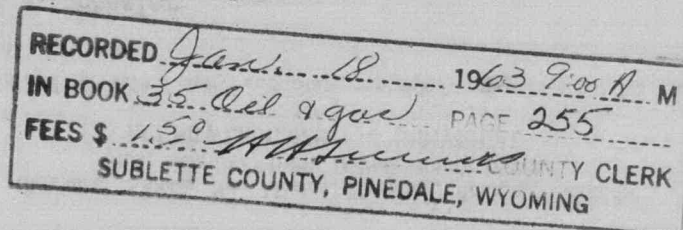 RECORDED Jan. 18 1963 9:00 A M
IN BOOK 35 Oil & gas PAGE 255
FEES $ 1.50 COUNTY CLERK
SUBLETTE COUNTY, PINEDALE, WYOMING